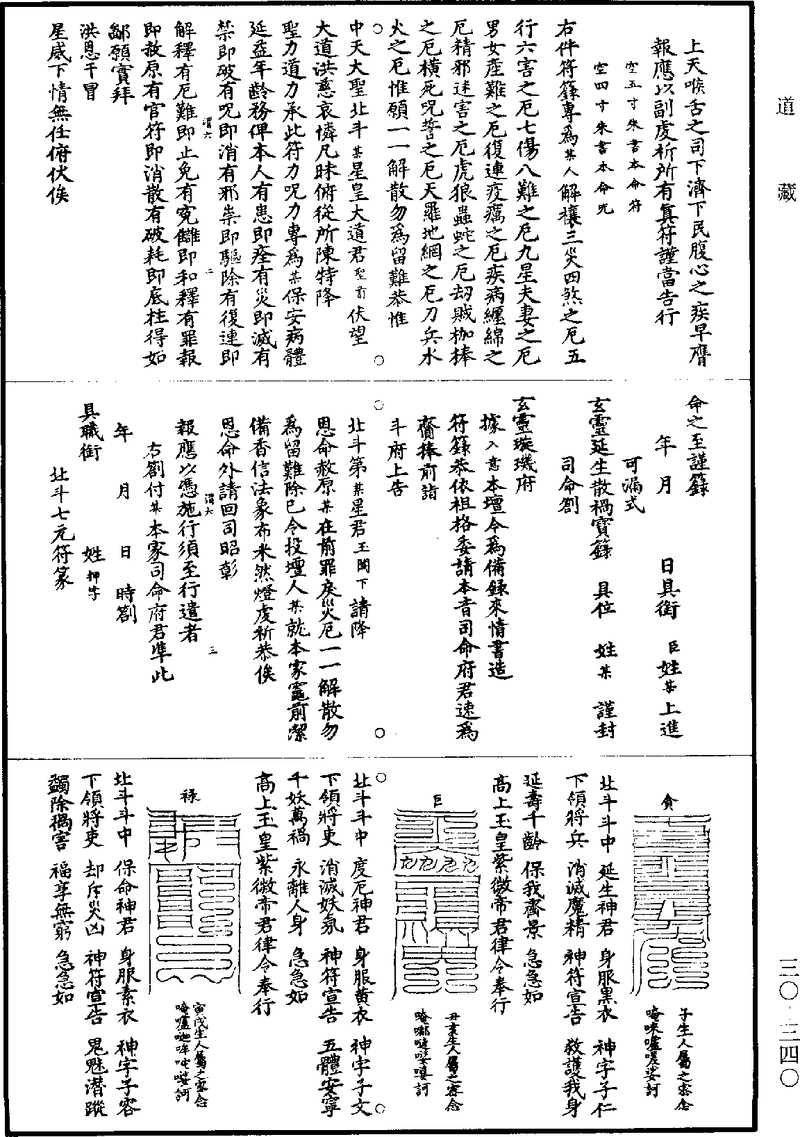 道藏
上天喉舌之司下濟下民腹心之疾早膺
報應以副虔祈所有真符謹當告行
空五寸朱書本命符
空四寸朱書本命咒
右件符籙專為某人解禳三災四煞之厄五
行六害之厄七傷八難之厄九星夫妻之厄
男女產難之厄復連疫癘之厄疾病纏綿之
厄精邪迷害之厄虎狼蟲蛇之厄劫賊枷棒
之厄橫死咒誓之厄天羅地網之厄刀兵水
火之厄惟願一一解散勿為留難恭惟
中天大聖北斗某星皇大道君聖前伏望
大道洪慈哀憐凡昧俯從所陳特降
聖力道力承此符力咒力專為某保安病體
延益年齡務俾本人有患即痊有災即滅有
禁即破有咒即消有邪祟即驅除有復連即
謂六 二
解釋有厄難即止免有冤讎即和釋有罪報
即赦原有官符即消散有破耗即底柱得如
鄙願實拜
洪恩干冒
星威下情無任俯伏俟
命之至謹籙
年 月 日具銜 臣姓某上進
可漏式
玄靈延生散禍寶籙 具位 姓某 謹封
司命劄
玄靈璇璣府
據入意本壇今為備錄來情書造
符籙恭依祖格委請本音司命府君速為
齎捧前詣
斗府上告
北斗第某某星君玉闕下請降
恩命赦原某在前罪戾災厄一一解散勿
為留難除已令投壇人某就本家竈前潔
備香信法象布米然燈虔祈恭俟
恩命外請回司昭彰
謂六 三
報應以憑施行須至行遣者
右劄付某本家司命府君準此
年 月 日 時劄
具職銜 姓 押字
北斗七元符篆
貪
子生人屬之密念
北斗斗中 延生神君 身服黑衣 神字子仁
下領將兵 消滅魔精 神符宣告 救護我身
延壽千齡 保我齋景 急急如
高上玉皇紫微帝君律令奉行
巨
丑亥生人屬之密念
北斗斗中 度厄神君 身服黄衣 神字子文
下領將吏 消滅妖氛 神符宣告 五體安寧
千妖萬禍 永離人身 急急如
高上玉皇紫微帝君律令奉行
祿
寅戌生人屬之密念
北斗斗中 保命神君 身服素衣 神字子容
下領將吏 却斥災凶 神符宣告 鬼魅潛蹤
蠲除禍害 福享無窮 急急如
三〇·三四〇